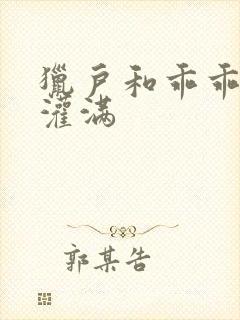 獵户和乖乖
灌满
郭某告